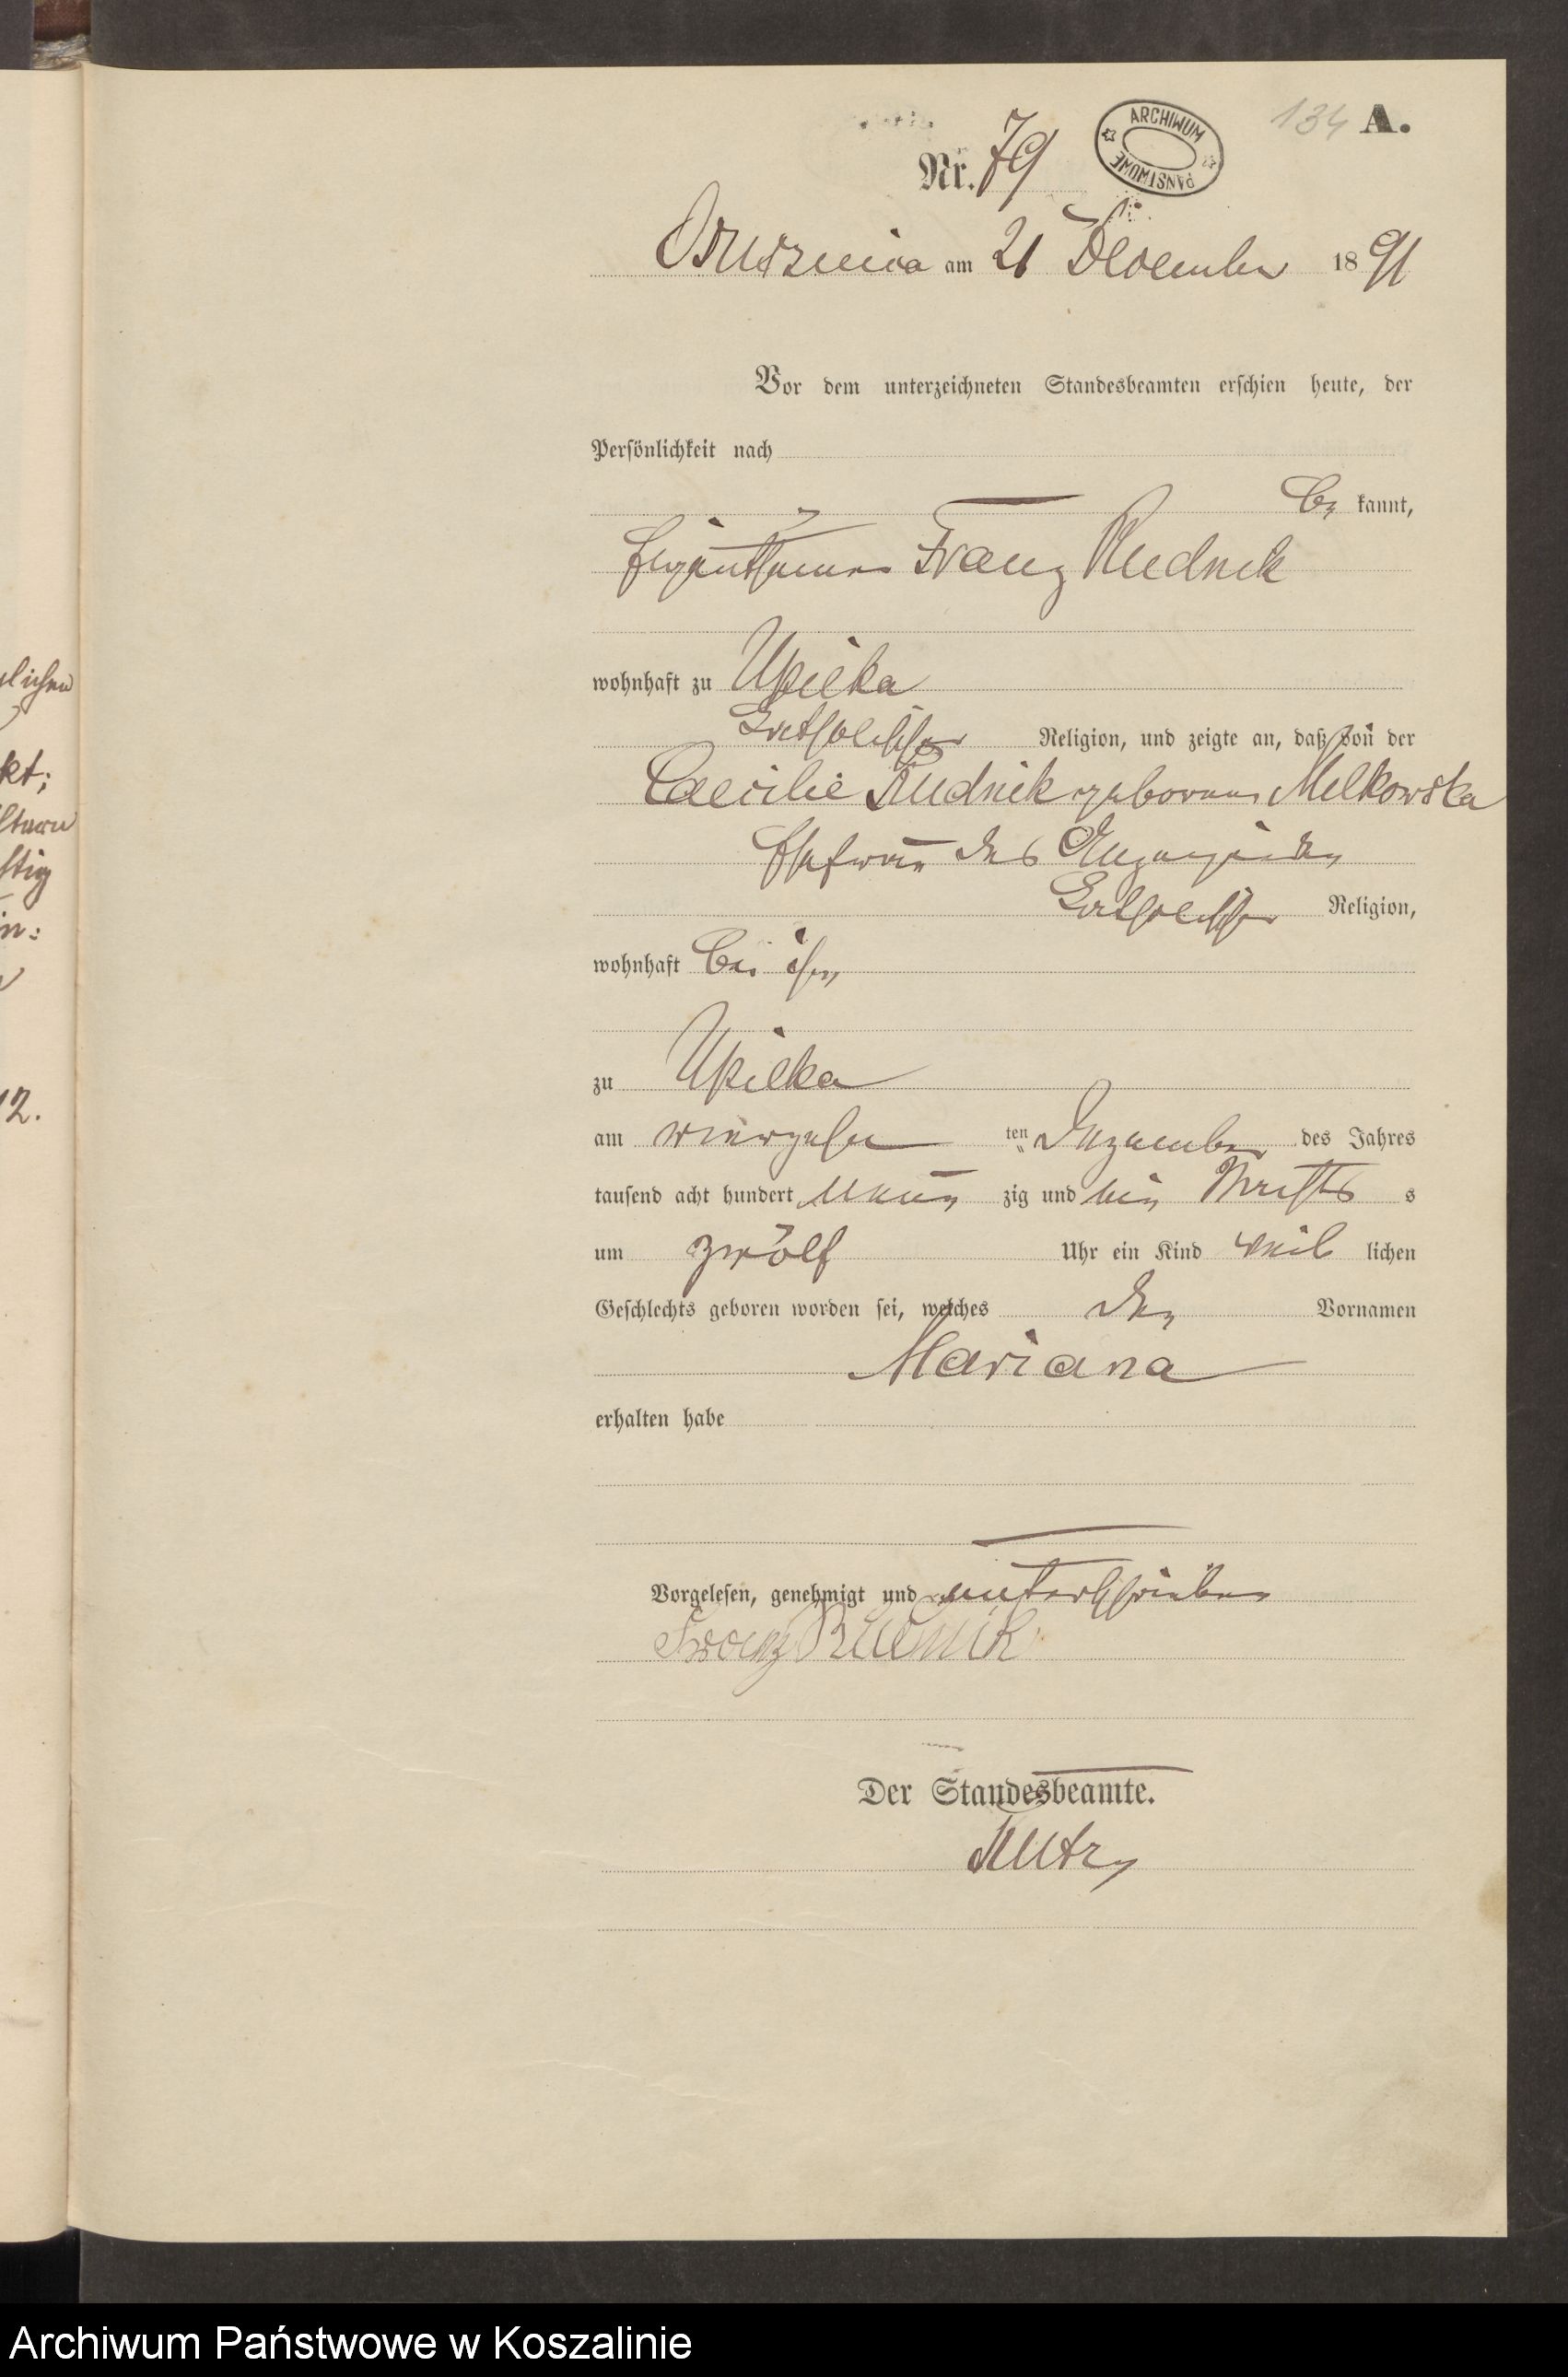 134 A.
ARCHIWUM PAŃSTWOWE
Nr. 79
am 21 December 1891
Vor dem unterzeichneten Standesbeamten erschien heute, der
Persönlichkeit nach
be kannt,
Eigenthümer Franz Rudnik
wohnhaft zu Upilka
katholischer Religion, und zeigte an, daß von der
Caecilie Rudnik geborenen Melkowska
Ehefrau des Anzeigenden
katholischer Religion,
wohnhaft bei ihm
zu Upilka
am vierzehn ten Dezember des Jahres
tausend acht hundert neun zig und ein Nachts s
um zwölf Uhr ein Kind weib lichen
Geschlechts geboren worden sei, welches den Vornamen
Mariana
erhalten habe
Vorgelesen, genehmigt und unterschrieben
Franz Rudnik
Der Standesbeamte.
lichen
kt;
stig
in:
12.
Archiwum Państwowe w Koszalinie